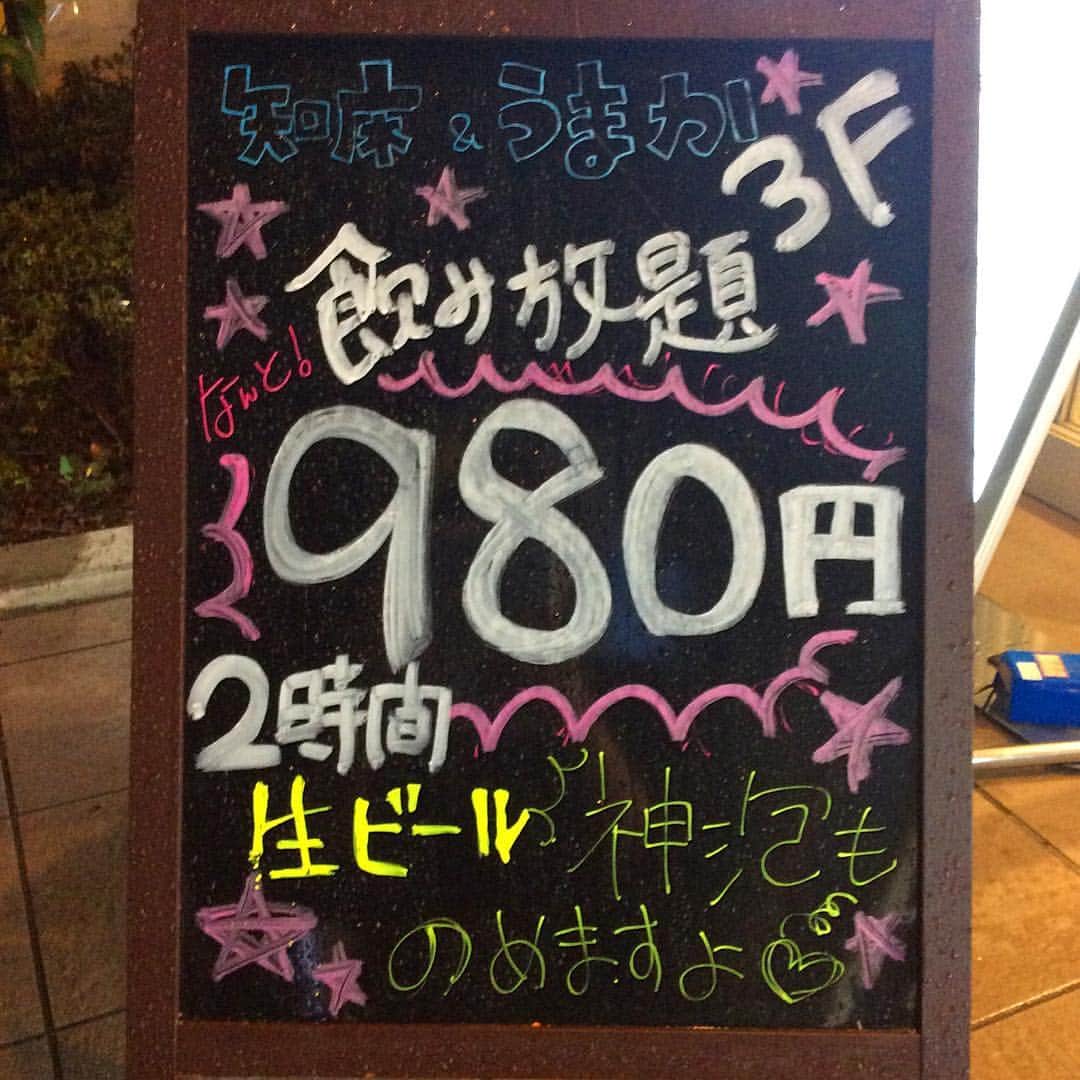 知床&うまか
3F
飲み放題
なんと!
980円
2時間
生ビール 神泡も
のめますよ